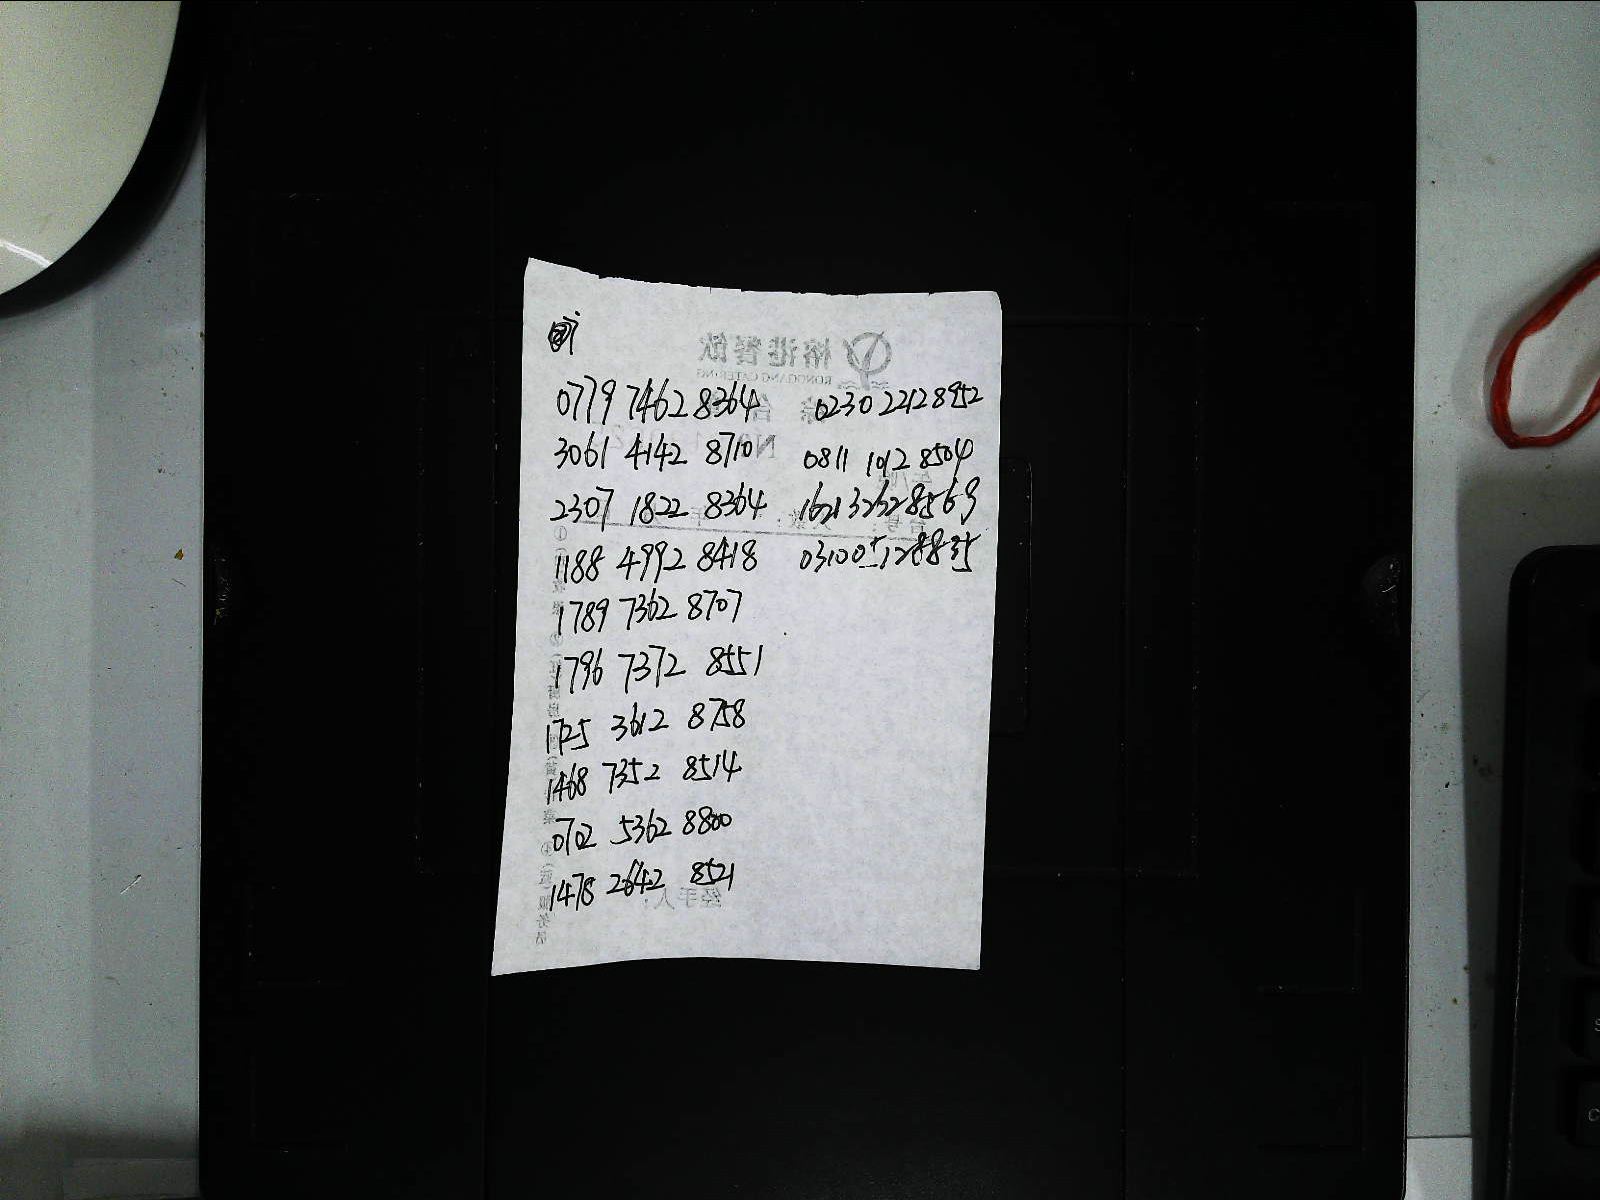 0779 7462 8364 0230 2212 8952
3061 4142 8710 0811 1012 8504
2307 1822 8364 1621 3262 8569
1188 4992 8418 0310 0512 8835
1789 7362 8707
1796 7372 8551
1725 3612 8758
1468 7352 8514
0702 5362 8800
1478 2642 8521